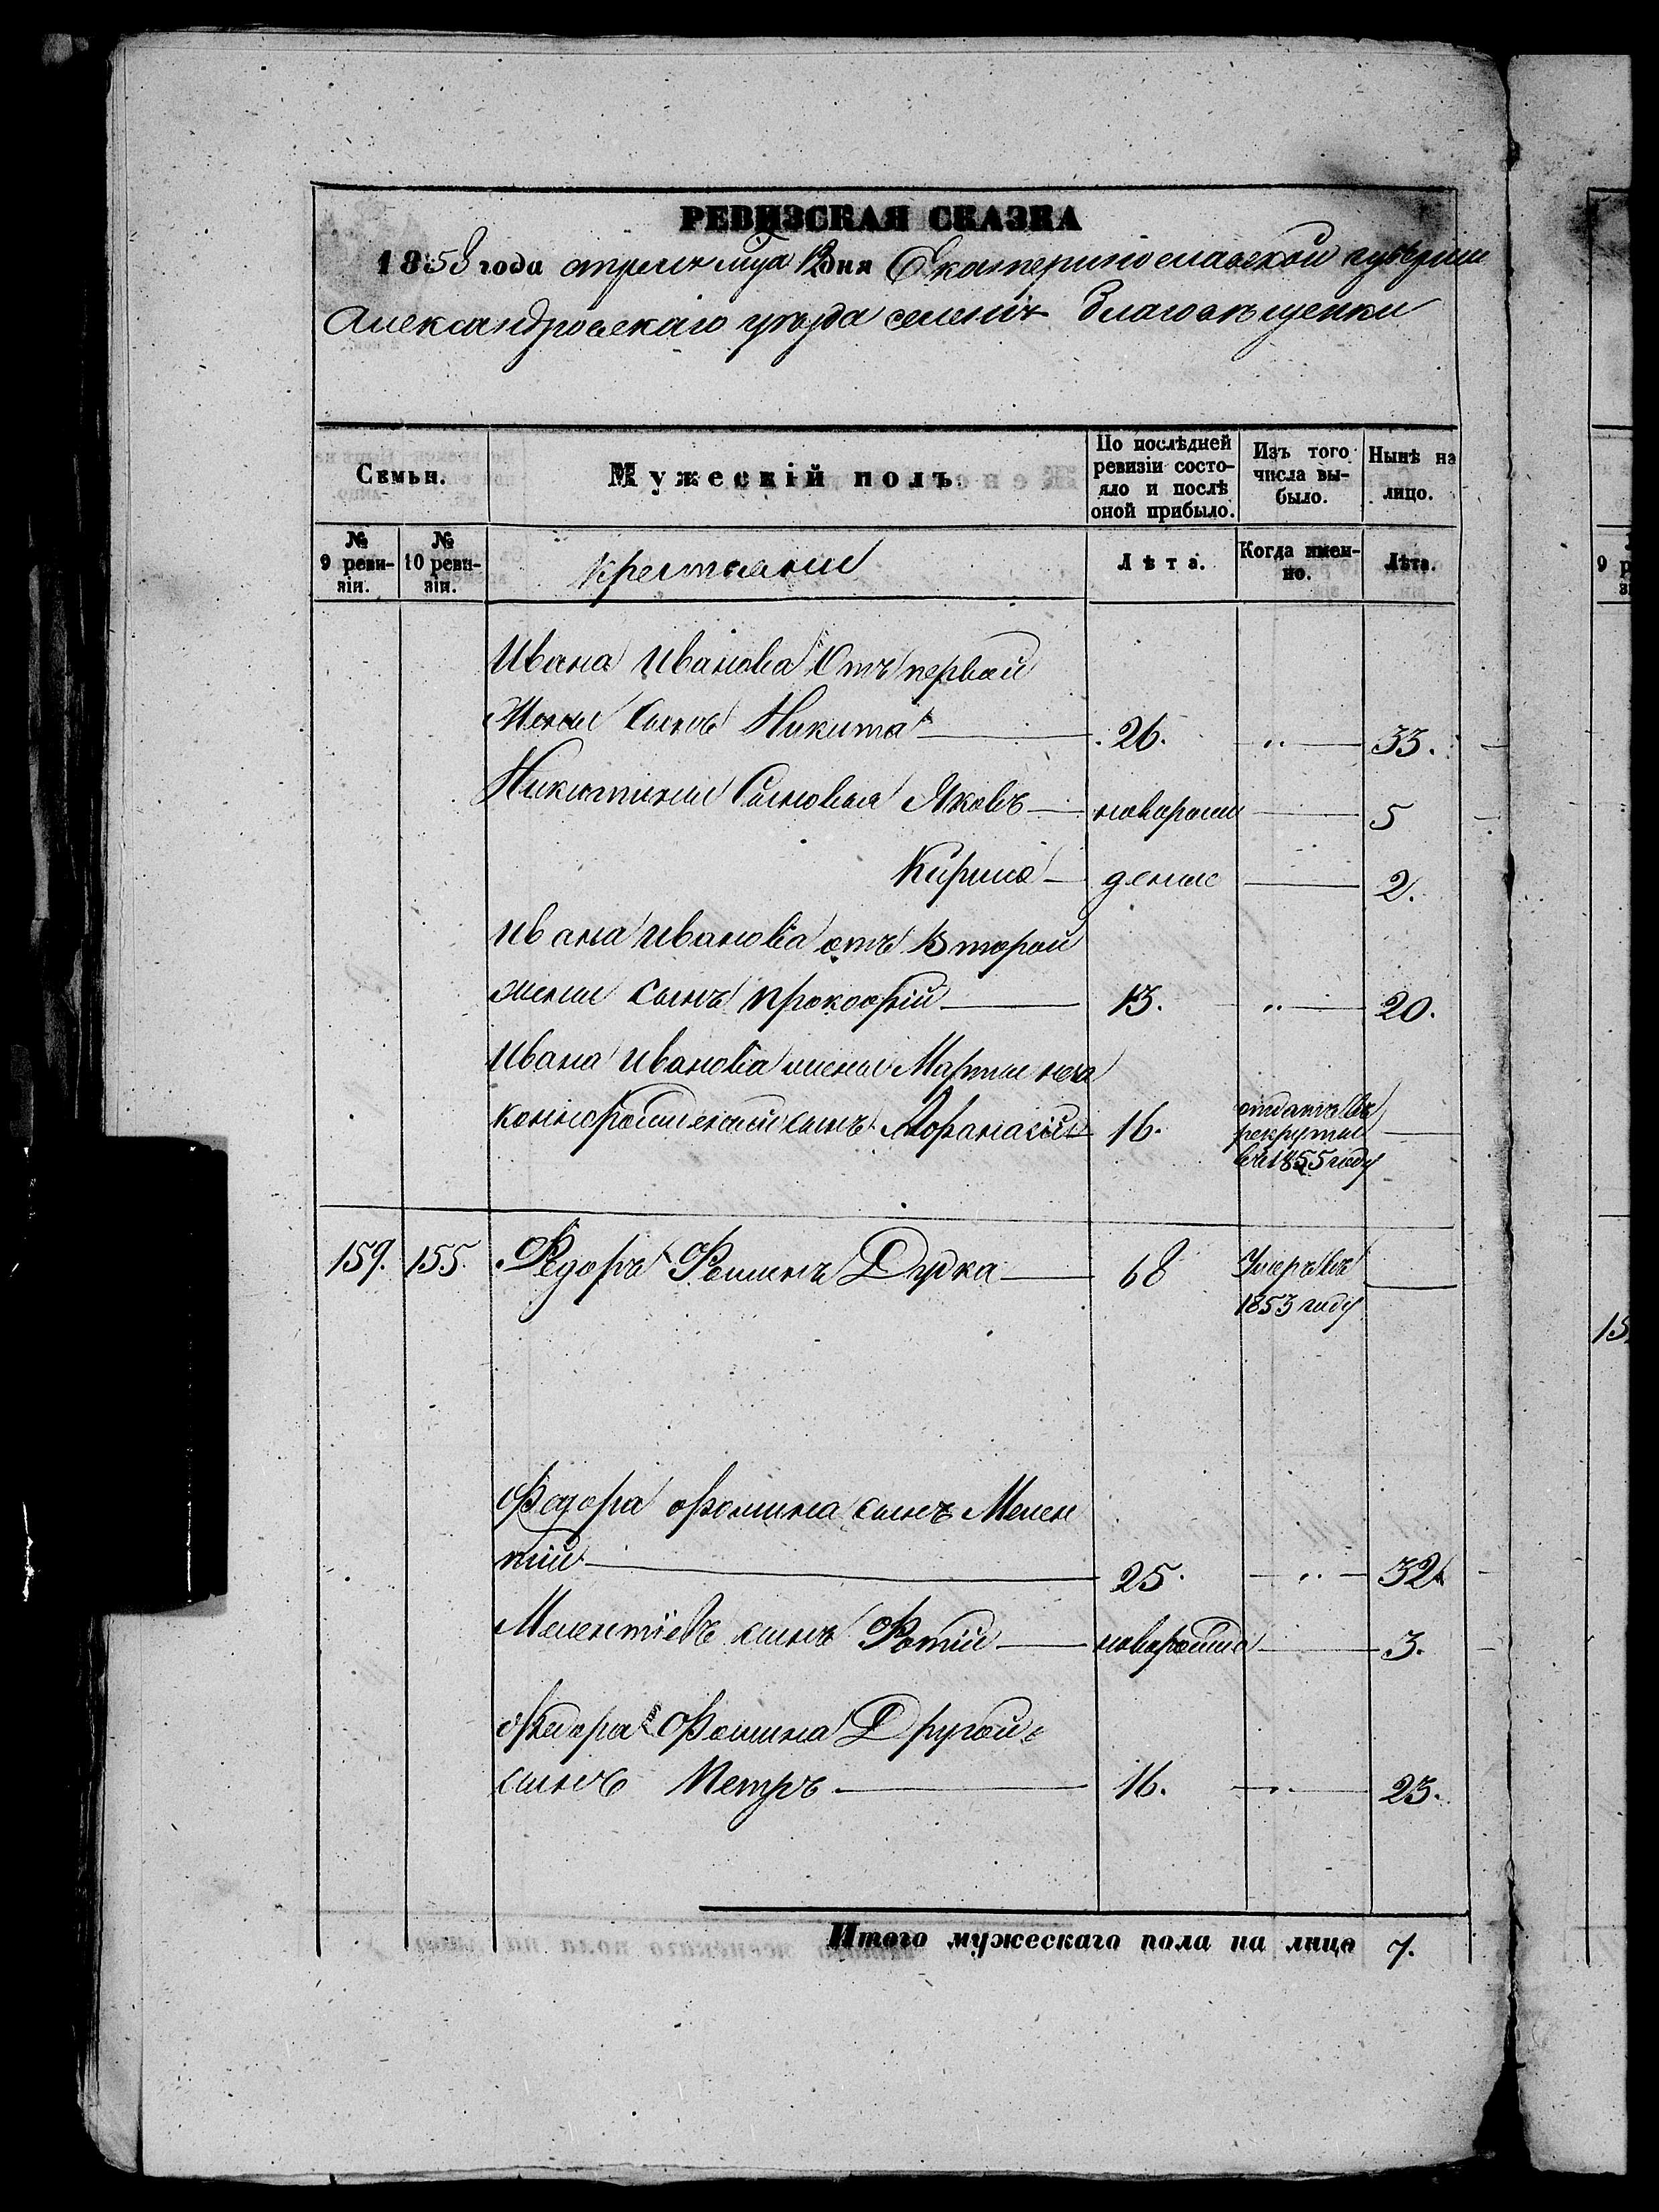 РЕВИЗСКАЯ СКАЗКА
1858 года апреля мца 12 дня Екатеринославской губерніи
Александровскаго уѣзда селенія Благовѣщенки
Семьи.
Мужескій полъ
По послѣдней ревизіи состояло и послѣ оной прибыло.
Изъ того числа выбыло.
Нынѣ на лицо.
№ 9 ревизіи.
№ 10 ревизіи.
крестьяне
Лѣта.
Когда именно.
Лѣта.
Ивана Иванова Отъ первой
жены сынъ Никита 26. „ 33.
Никитины Сыновья Яковъ новорож 5
Кирило деные 2.
Ивана Иванова отъ Второй
жены сынъ Прокофій 13. „ 20.
Ивана Иванова жены Марты неза
коннорожденый сынъ Афанасій 16. отданъ въ рекруты въ 1855 году
159. 155. Федоръ Фоминъ Дудка 68 Умеръ въ 1853 году
Федора Фомина сынъ Мелен
тій 25. „ 32
Мелентіевъ сынъ Фотій новорожд 3.
Федора Фомина Другой
сынъ Петръ 16. „ 23.
Итого мужескаго пола на лицо 7.
9
15